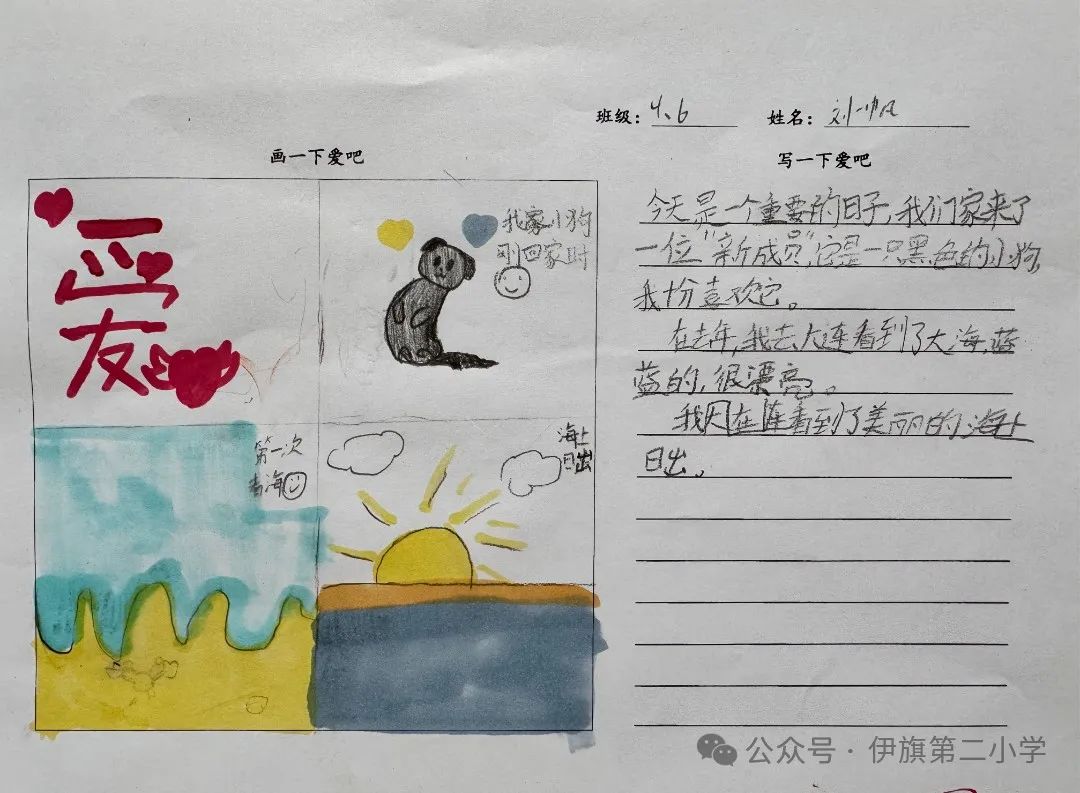 班级：4、6 姓名：刘一帆
画一下爱吧
写一下爱吧
爱
我家小狗
刚回家时
第一次
看海
海上
日出
今天是一个重要的日子，我们家来了
一位"新成员"它是一只黑色的小狗，
我十分喜欢它。
在去年，我去大连看到了大海，蓝
蓝的，很漂亮。
我又在大连看到了美丽的海上
日出。
公众号·伊旗第二小学